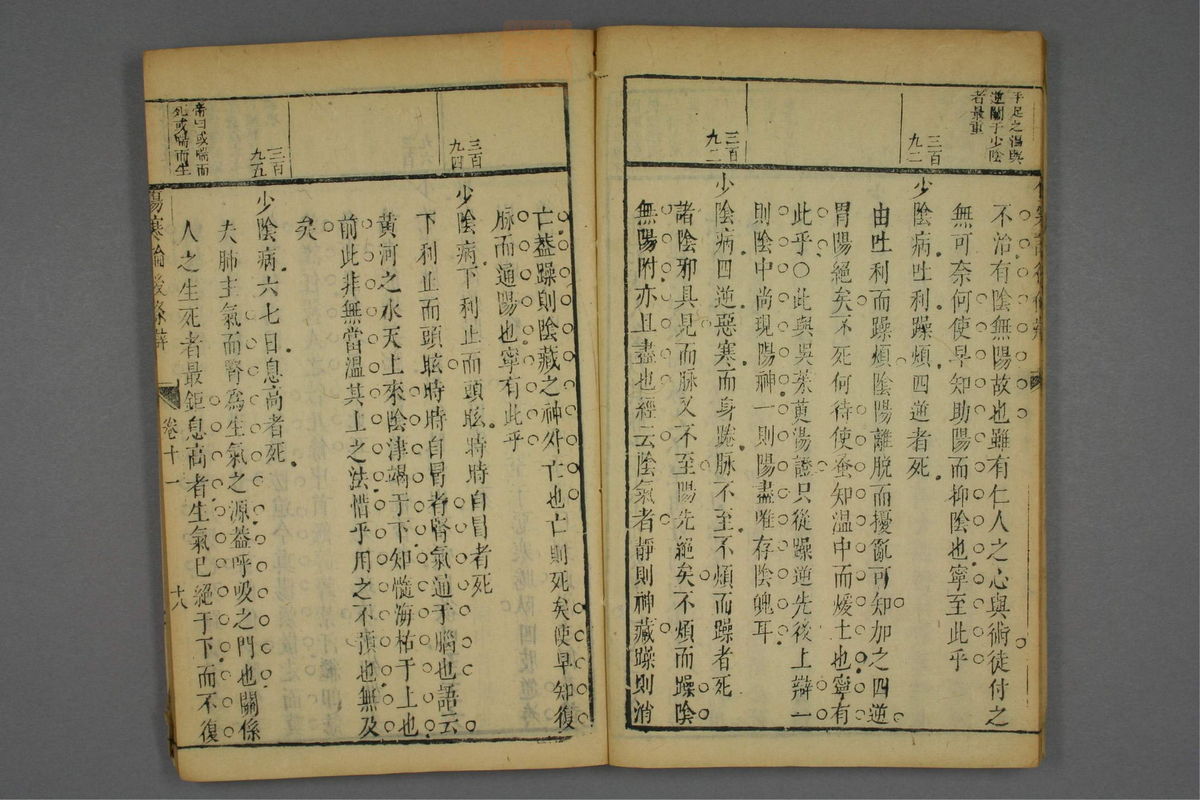 手足之溫與
逆關于少陰
者最重
不治有陰無陽故也雖有仁人之心與術徒付之
無可奈何使早知助陽而抑陰也寧至此乎
三百
九二
少陰病吐利躁煩四逆者死
由吐利而躁煩陰陽離脫而擾亂可知加之四逆
胃陽絕矣不死何待使蚤知温中而煖土也寧有
此乎○此與吳茱萸湯證只從躁逆先後上辯一
則陰中尚現陽神一則陽盡唯存陰魄耳
三百
九二
少陰病四逆惡寒而身踡脉不至不煩而躁者死
諸陰邪具見而脉又不至陽先絕矣不煩而躁陰
無陽附亦且盡也經云陰氣者靜則神藏躁則消
亡葢躁則陰藏之神外亡也亡則死矣使早知復
脉而通陽也寧有此乎
三百
九四
少陰病下利止而頭眩時時自冒者死
下利止而頭眩時時自冒者腎氣通于腦也語云
黃河之水天上來陰津竭于下知髓海枯于上也
前此非無當溫其上之法惜乎用之不預也無及
矣
三百
九五
少陰病六七日息高者死
夫肺主氣而腎爲生氣之源葢呼吸之門也關係
帝曰或喘而
死或喘而生
人之生死者最鉅息高者生氣已絕于下而不復
傷寒論後條辯
卷十一
十八